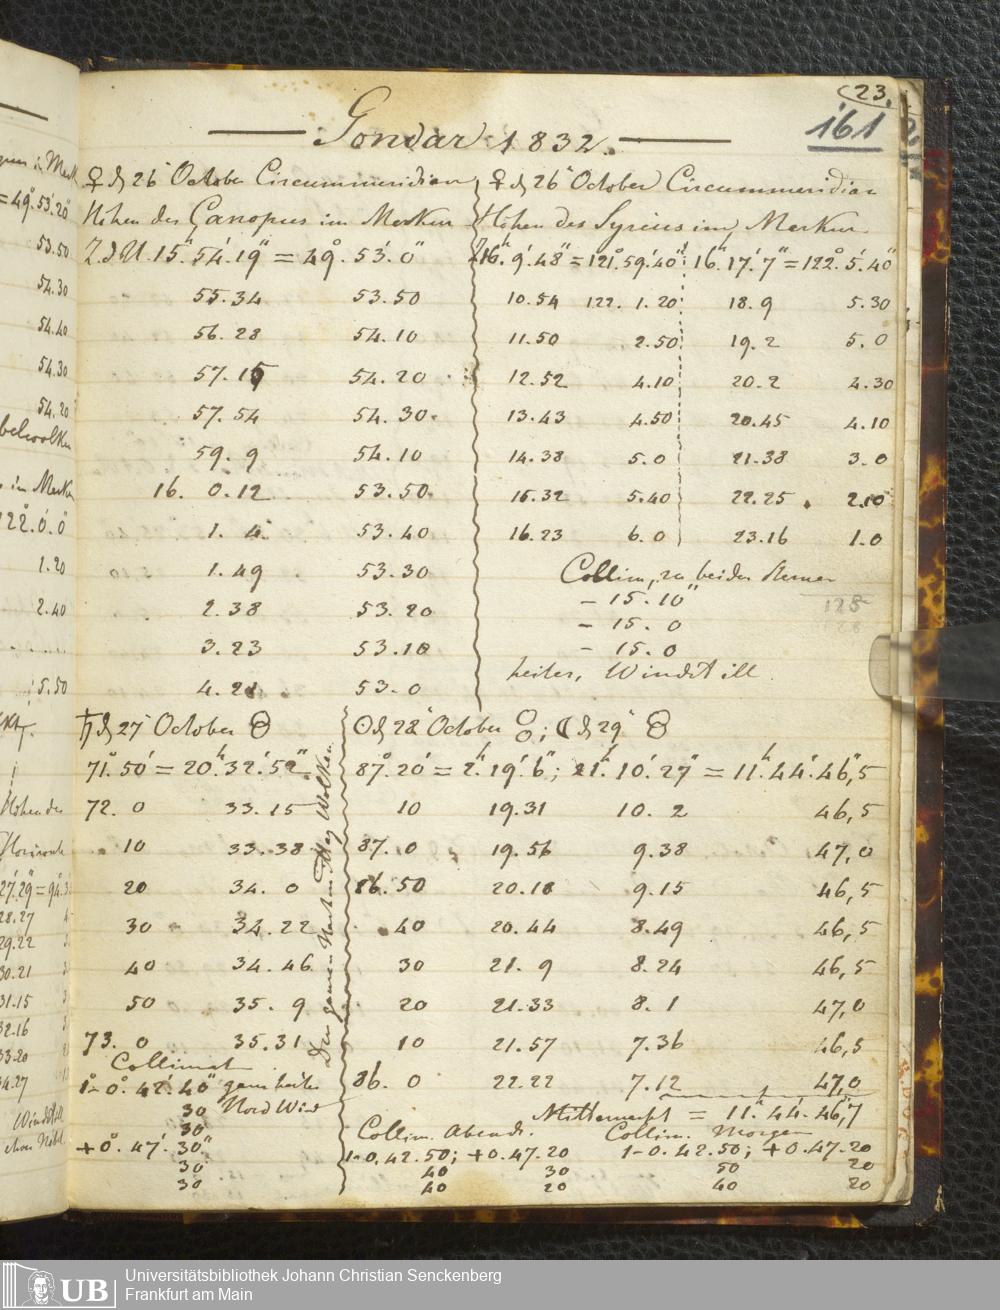 (23.
161
Gondar 1832.
♀ d 26 October Circummeridian
Höhen des Canopus im Merkur
Z. d U. 15h. 54'. 19" = 49°. 53'. 0"
55. 34 53. 50
56. 28 54. 10
57. 15 54. 20
57. 54 54. 30
59. 9 54. 10
16. 0. 12 53. 50
1. 4 53. 40
1. 49 53. 30
2. 38 53. 20
3. 23 53. 10
4. 21 53. 0
♀ d 26 October Circummeridian
Höhen des Syrius im Merkur
16h. 9'. 48" = 121°. 59'. 40" 16h. 17'. 7" = 122°. 5'. 40"
10. 54 122. 1. 20 18. 9 5. 30
11. 50 2. 50 19. 2 5. 0
12. 52 4. 10 20. 2 4. 30
13. 43 4. 50 20. 45 4. 10
14. 38 5. 0 21. 38 3. 0
15. 32 5. 40 22. 25 2. 10
16. 23 6. 0 23. 16 1. 0
Collim. zu beiden Sternen
- 15'. 10"
- 15. 0
- 15. 0
heiter, Windstill
♄ d 27 October
71°. 50' = 20h. 32'. 52"
72. 0 33. 15
10 33. 38
20 34. 0
30 34. 22
40 34. 46
50 35. 9
73. 0 35. 31
Collimat
1 - 0°. 42'. 40" ganz heiter
30 Nord Wind
30
+ 0°. 47'. 30"
30
30
Den ganzen Nachmittag Wolken
☉ d 28 October ; ☾ d 29
87°. 20' = 2h. 19'. 6"; 21h. 10'. 27" = 11h. 44'. 46",5
10 19. 31 10. 2 46,5
87. 0 19. 56 9. 38 47,0
86. 50 20. 18 9. 15 46,5
40 20. 44 8. 49 46,5
30 21. 9 8. 24 46,5
20 21. 33 8. 1 47,0
10 21. 57 7. 36 46,5
86. 0 22. 22 7. 12 47,0
Mitternacht = 11h. 44'. 46",7
Collim. Abends. Collim. Morgen
1 - 0. 42. 50; + 0. 47. 20 1 - 0. 42. 50; + 0. 47. 20
40 30 50 20
40 20 40 20
UB
Universitätsbibliothek Johann Christian Senckenberg
Frankfurt am Main